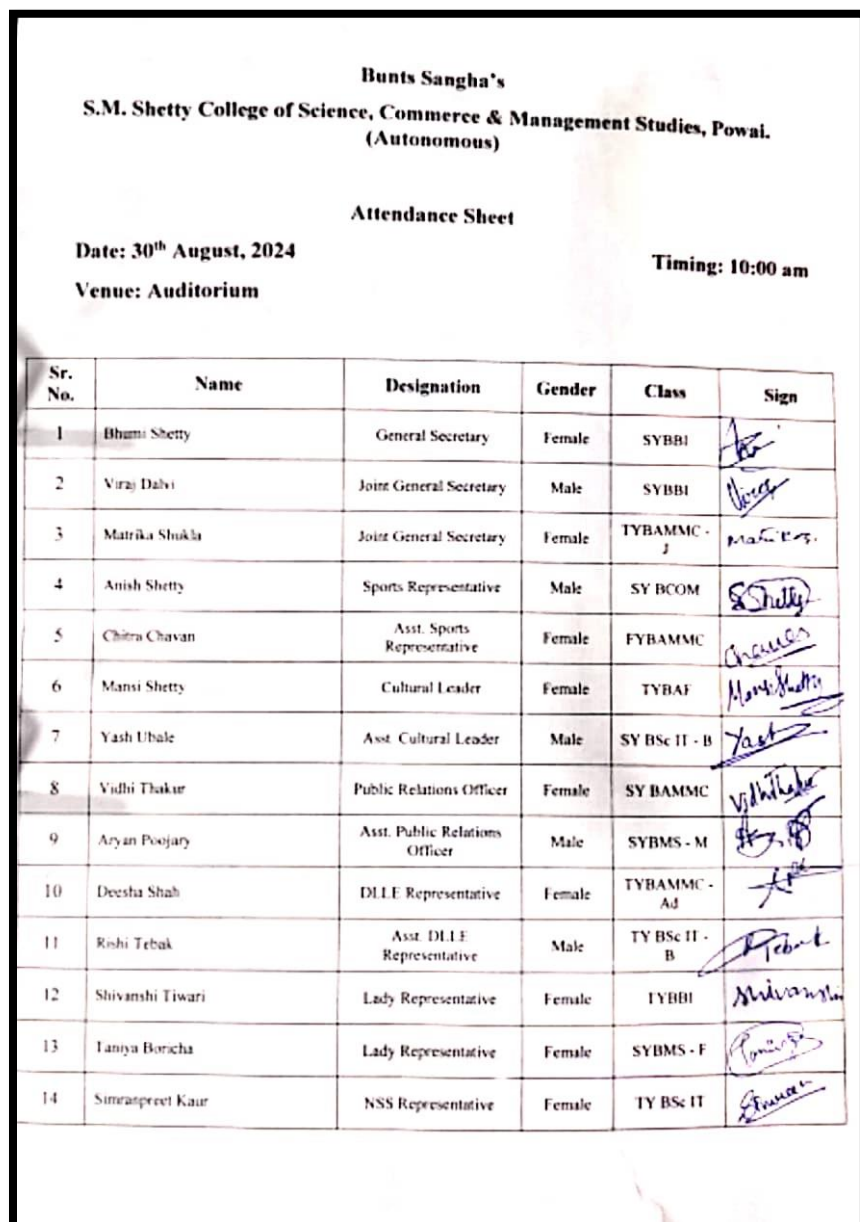 Bunts Sangha's
S.M. Shetty College of Science, Commerce & Management Studies, Powai.
(Autonomous)
Attendance Sheet
Date: 30th August, 2024
Timing: 10:00 am
Venue: Auditorium
Sr. No. Name Designation Gender Class Sign
1 Bhumi Shetty General Secretary Female SYBBI
2 Viraj Dalvi Joint General Secretary Male SYBBI Viraj
3 Matrika Shukla Joint General Secretary Female TYBAMMC - J
4 Anish Shetty Sports Representative Male SY BCOM Shetty
5 Chitra Chavan Asst. Sports Representative Female FYBAMMC
6 Mansi Shetty Cultural Leader Female TYBAF Mansi Shetty
7 Yash Ubale Asst. Cultural Leader Male SY BSc IT - B Yash
8 Vidhi Thakur Public Relations Officer Female SY BAMMC Vidhi Thakur
9 Aryan Poojary Asst. Public Relations Officer Male SYBMS - M
10 Deesha Shah DLLE Representative Female TYBAMMC - Ad
11 Rishi Tebak Asst. DLLE Representative Male TY BSc IT - B Tebak
12 Shivanshi Tiwari Lady Representative Female TYBBI Shivanshi
13 Taniya Boricha Lady Representative Female SYBMS - F
14 Simranpreet Kaur NSS Representative Female TY BSc IT Simran